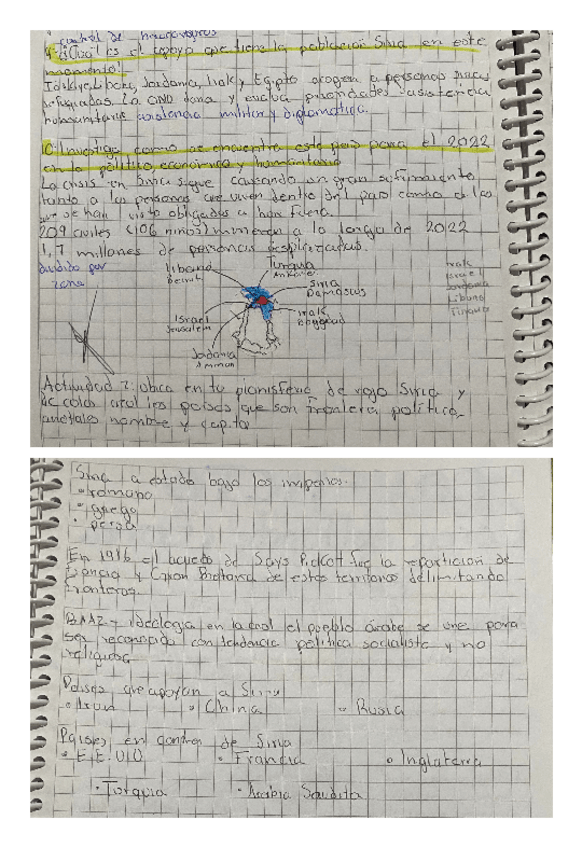 control de
9-¿Cuál es el apoyo que tiene la población Siria en este
momento?
Líbano, Jordania, Irak y Egipto acogen a personas
refugiadas. La ONU dona y evalua prioridades asistencia
humanitaria asistencia militar y diplomatica.
10. Investiga como se encuentra este pais para el 2022
en lo politico, economico y humanitario
La crisis en Siria sigue causando un gran sufrimiento
tanto a las personas que viven dentro del pais como a las
que se han visto obligadas a huir fuera.
209 civiles (106 niños) murieron a lo largo de 2022
1,7 millones de personas desplazadas.
dividido por
zona
Libano
Beirut
Turquia
Ankara
Siria
Damascus
Irak
Baggdad
Israel
Jerusalem
Jordania
Amman
Irak
Israel
Jordania
Libano
Turquia
Actividad 2: ubica en tu planisferio de rojo Siria y
de color azul los paises que son frontera politica,
anotales nombre y capital
Siria a estado bajo los imperios:
• romano
• griego
• persa
En 1916 el acuerdo de Says Picket fue la repartición de
Francia y Gran Bretaña de estos territorios delimitando
fronteras.
BAAZ → ideologia en la cual el pueblo árabe se une para
ser reconocido con tendencia politica socialista y no
religiosa
Paises que apoyan a Siria
• Iran • China • Rusia
Paises en contra de Siria
• E.E.U.U • Francia • Inglaterra
• Turquia • Arabia Saudita